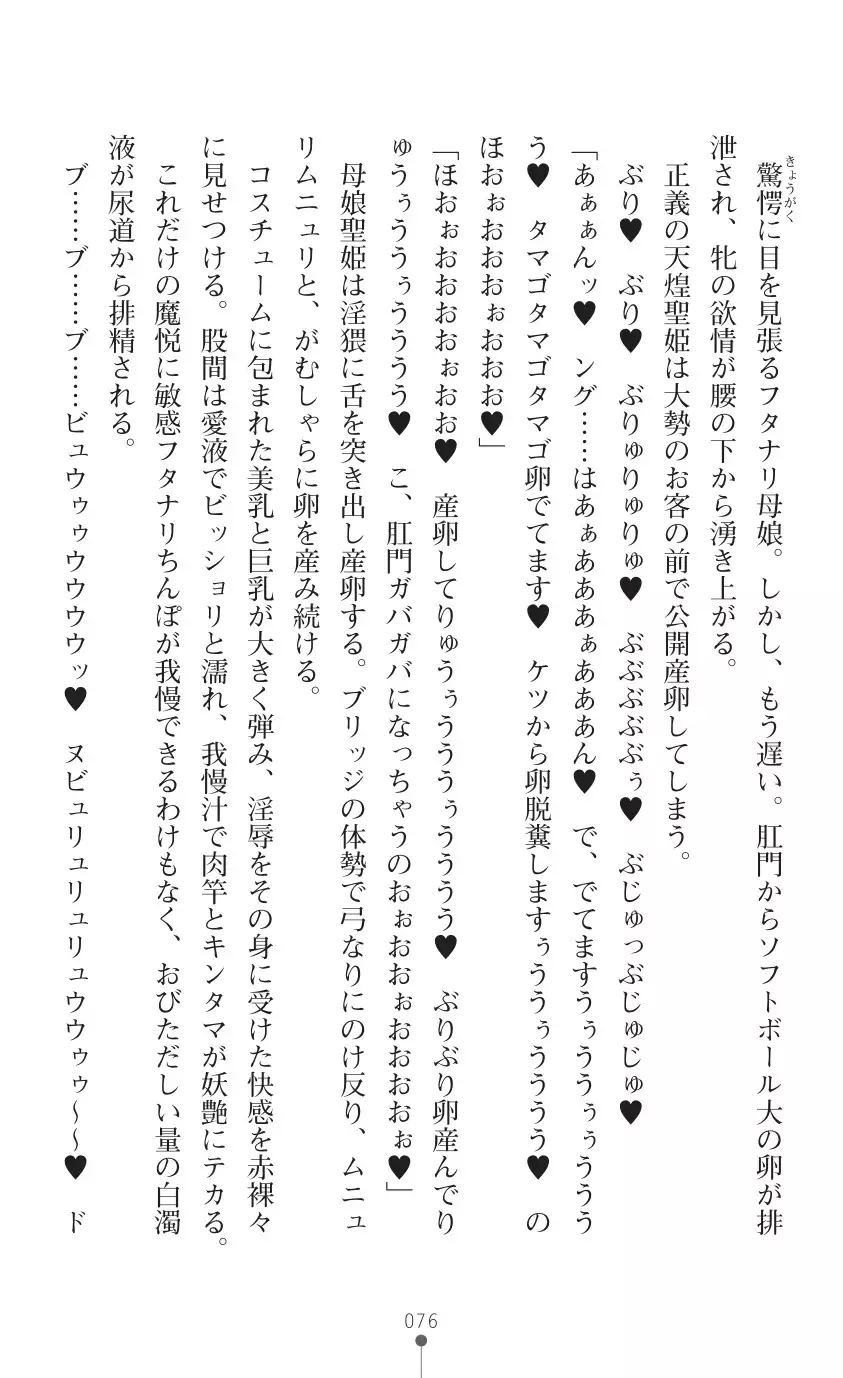 驚愕に目を見張るフタナリ母娘。しかし、もう遅い。肛門からソフトボール大の卵が排
きょうがく
泄され、牝の欲情が腰の下から湧き上がる。
正義の天煌聖姫は大勢のお客の前で公開産卵してしまう。
ぶり♥　ぶり♥　ぶりゅりゅりゅ♥　ぶぶぶぶぶぅ♥　ぶじゅっぶじゅじゅ♥
「あぁぁんッ♥　ング……はあぁあああぁあああん♥　で、でてますうぅううぅぅううう
う♥　タマゴタマゴタマゴ卵でてます♥　ケツから卵脱糞しますぅううぅうううう♥　の
ほおぉおおおぉおおお♥」
「ほおぉおおおおぉおお♥　産卵してりゅうぅうううぅうううう♥　ぶりぶり卵産んでり
ゅうぅううぅうううう♥　こ、肛門ガバガバになっちゃうのおぉおおぉおおおおぉ♥」
母娘聖姫は淫猥に舌を突き出し産卵する。ブリッジの体勢で弓なりにのけ反り、ムニュ
リムニュリと、がむしゃらに卵を産み続ける。
コスチュームに包まれた美乳と巨乳が大きく弾み、淫辱をその身に受けた快感を赤裸々
に見せつける。股間は愛液でビッショリと濡れ、我慢汁で肉竿とキンタマが妖艶にテカる。
これだけの魔悦に敏感フタナリちんぽが我慢できるわけもなく、おびただしい量の白濁
液が尿道から排精される。
ブ……ブ……ブ……ビュウゥゥウウウウッ♥　ヌビュリュリュリュウウゥゥ〜〜♥　ド
076